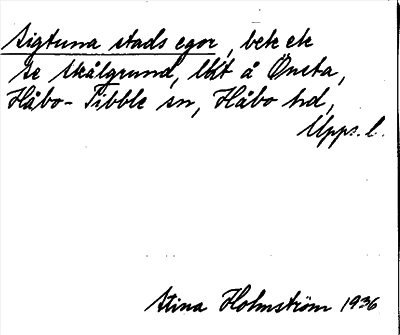 Sigtuna stads egor, bek ek
se Skålgrund, lkt å Önsta,
Håbo-Tibble sn, Håbo hd,
Upps. l.
Stina Holmström 1936